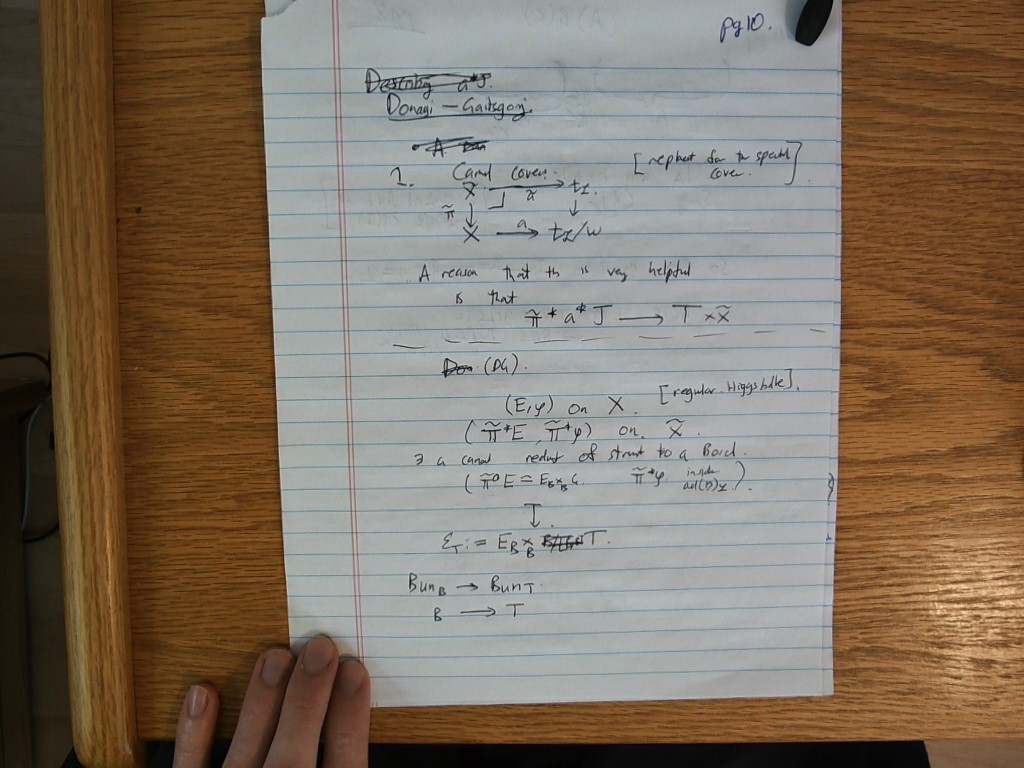 pg 10.
Describing a*J.
Donagi – Gaitsgory.
• A Don
1. Caml cover. [replact for th spectral cover.]
X̃ → t_L.
π̃ ↓ ã ↓
X →a t_L/W
A reason that th is very helpful
is that
π̃* a* J → T × X̃
Don (DG).
(E, φ) on X. [regular Higgs bdle].
(π̃*E, π̃*φ) on X̃.
∃ a canal reduct of struct to a Borel.
(π̃*E = E_B ×_B G. π̃*φ inside ad(B)_L).
↧.
ℰ_T := E_B ×_B T.
Bun_B → Bun_T.
B → T